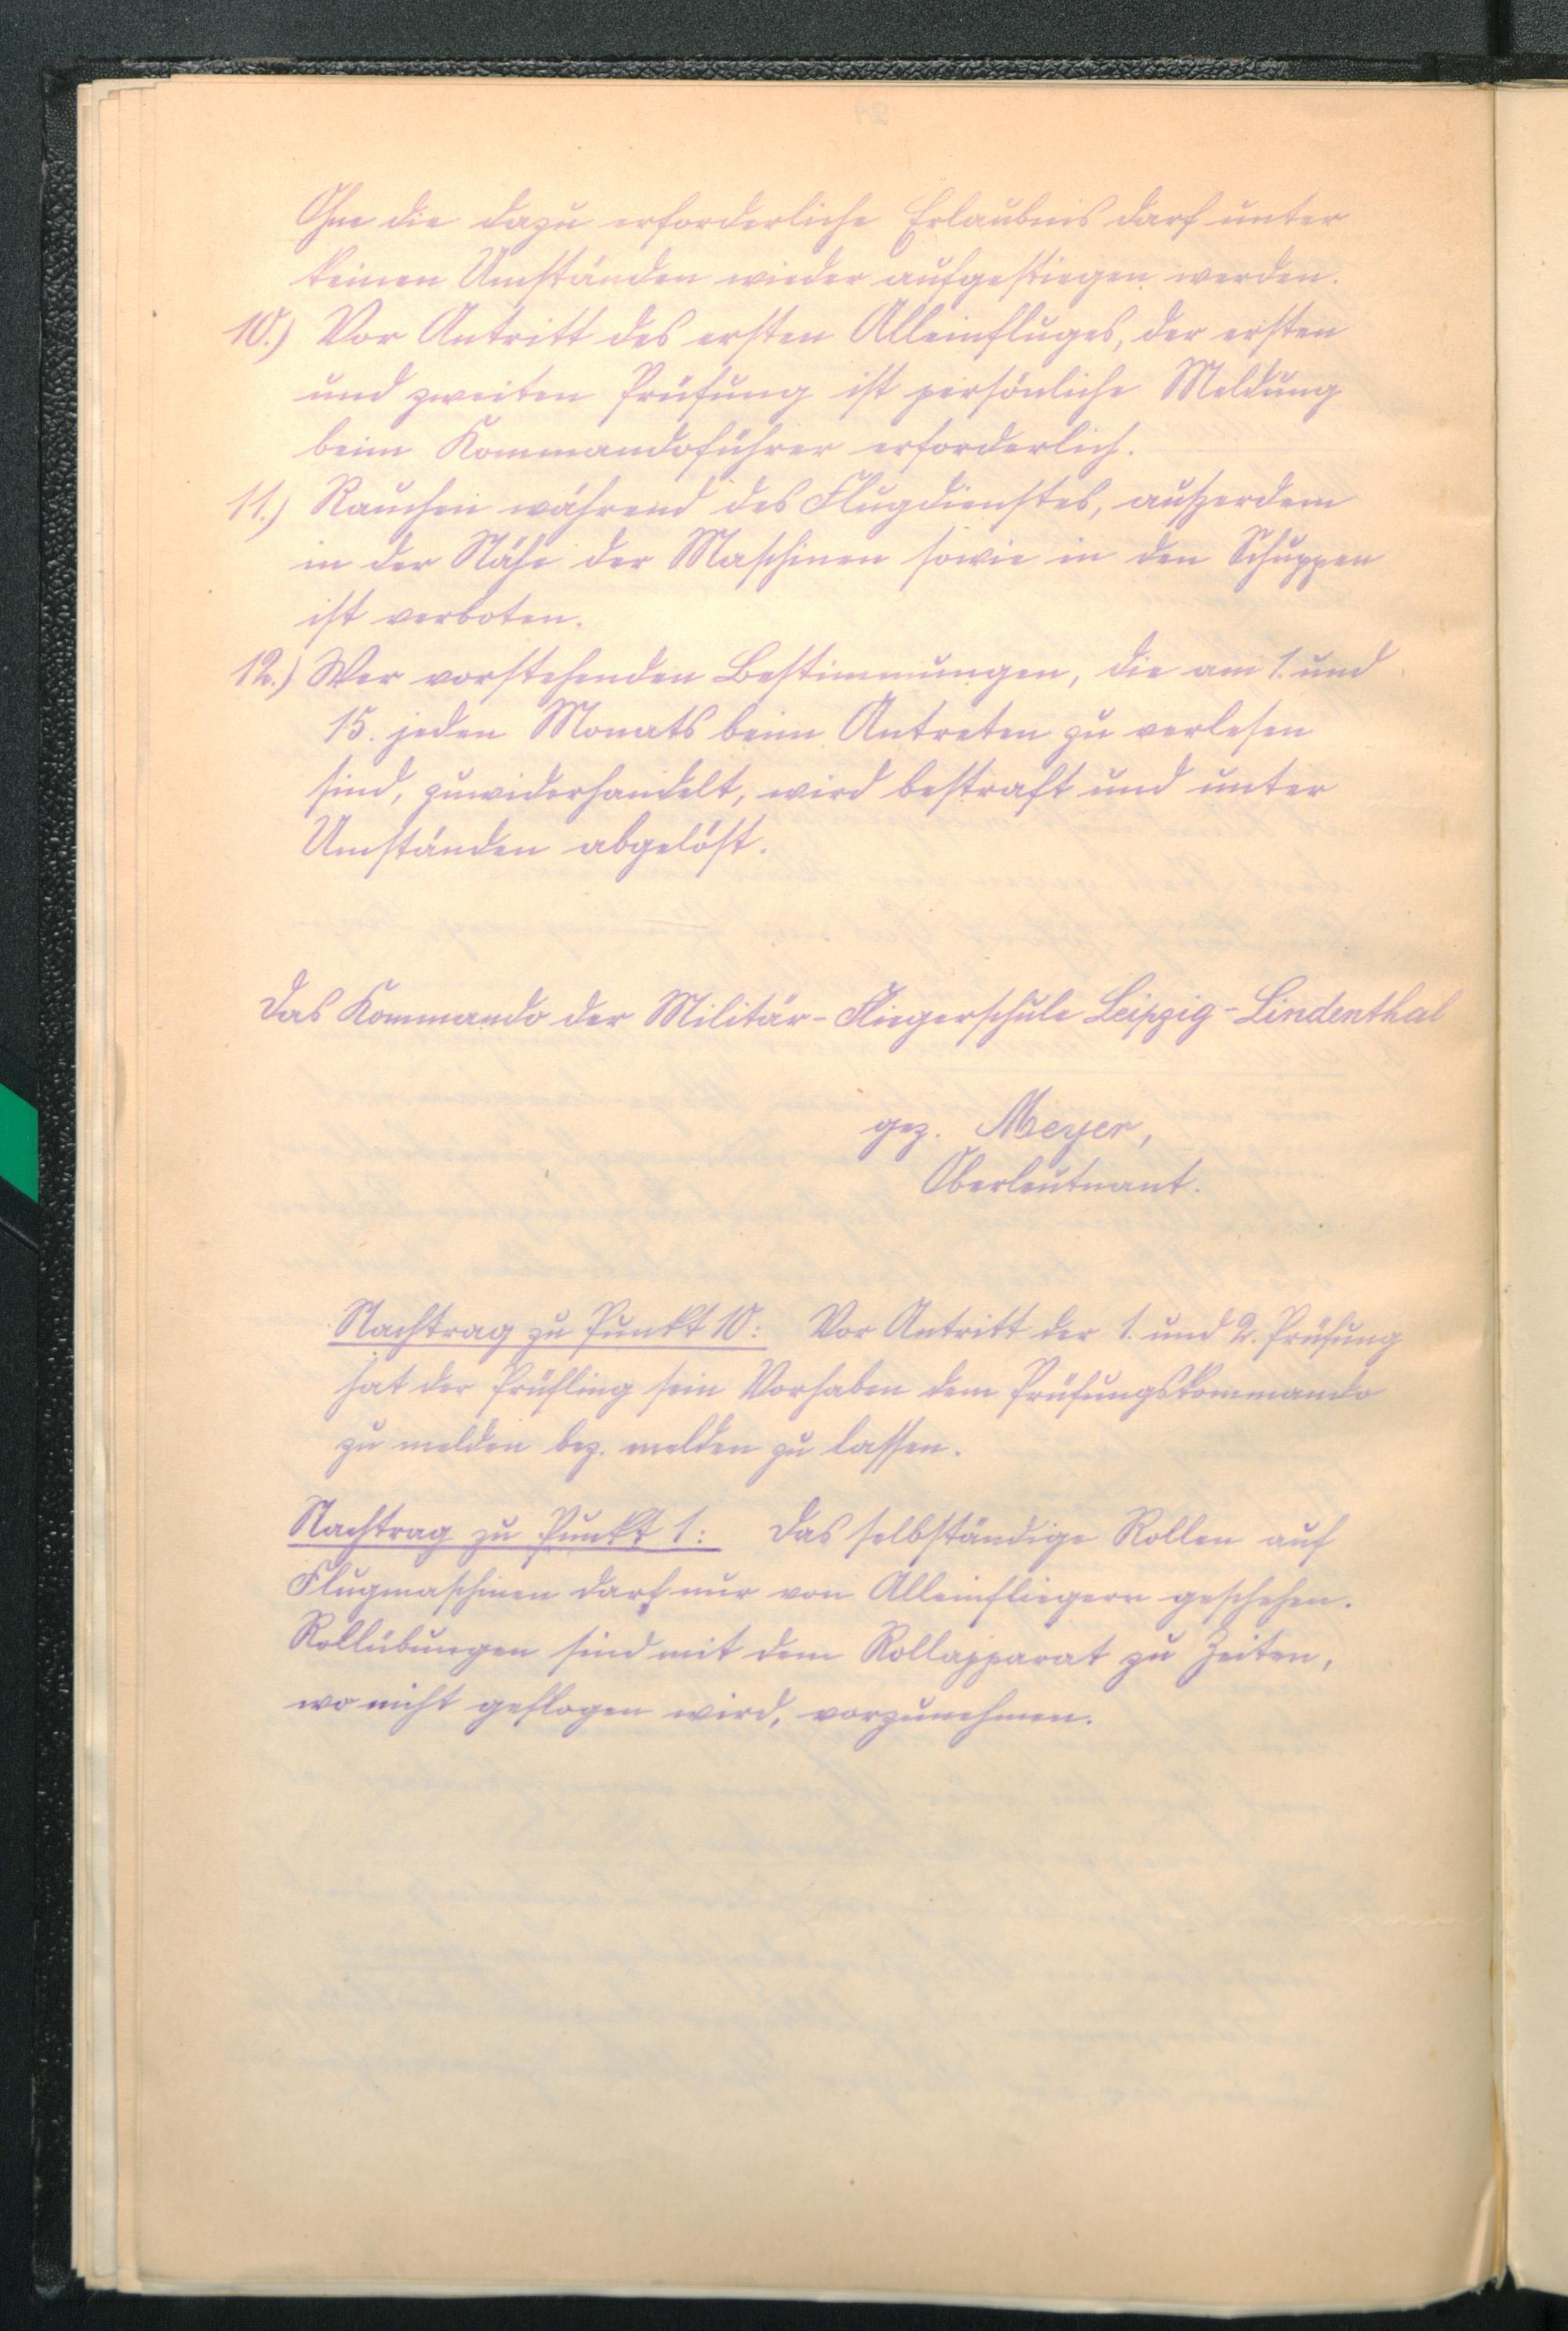 Ohne die dazu erforderliche Erlaubnis darf unter
keinen Umständen wieder aufgestiegen werden.
10.) Vor Antritt des ersten Alleinfluges, der ersten
und zweiten Prüfung ist persönliche Meldung
beim Kommandoführer erforderlich.
11.) Rauchen während des Flugdienstes, außerdem
in der Nähe der Maschinen sowie in den Schuppen
ist verboten.
12.) Wer vorstehenden Bestimmungen, die am 1. und
15. jeden Monats beim Antreten zu verlesen
sind, zuwiderhandelt, wird bestraft und unter
Umständen abgelöst.
Das Kommando der Militär-Fliegerschule Leipzig-Lindenthal
gez. Meyer,
Oberleutnant.
Nachtrag zu Punkt 10: Vor Antritt der 1. und 2. Prüfung
hat der Prüfling sein Vorhaben dem Prüfungskommando
zu melden bez. melden zu lassen.
Nachtrag zu Punkt 1: Das selbständige Rollen auf
Flugmaschinen darf nur von Alleinfliegern geschehen.
Rollübungen sind mit dem Rollapparat zu Zeiten,
wo nicht geflogen wird, vorzunehmen.